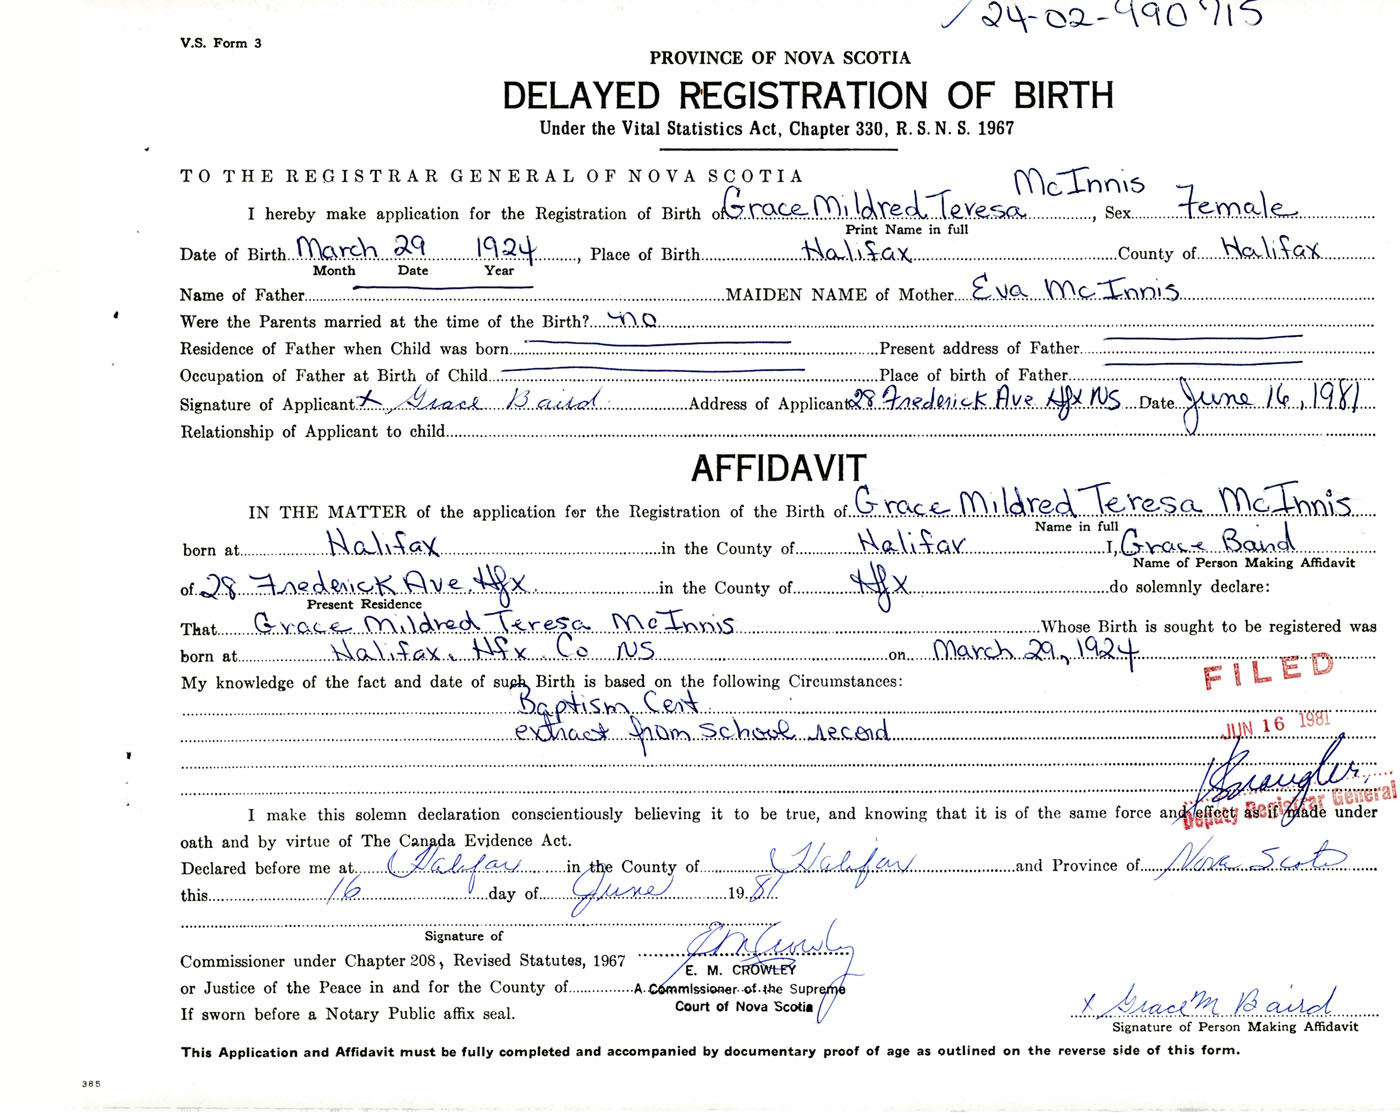 24-02-990715
V.S. Form 3
PROVINCE OF NOVA SCOTIA
DELAYED REGISTRATION OF BIRTH
Under the Vital Statistics Act, Chapter 330, R. S. N. S. 1967
TO THE REGISTRAR GENERAL OF NOVA SCOTIA
I hereby make application for the Registration of Birth of Grace Mildred Teresa McInnis, Sex Female
Print Name in full
Date of Birth March 29 1924, Place of Birth Halifax County of Halifax
Month Date Year
Name of Father MAIDEN NAME of Mother Eva McInnis
Were the Parents married at the time of the Birth? no
Residence of Father when Child was born Present address of Father
Occupation of Father at Birth of Child Place of birth of Father
Signature of Applicant x Grace Baird Address of Applicant 28 Frederick Ave Hfx NS Date June 16, 1981
Relationship of Applicant to child
AFFIDAVIT
IN THE MATTER of the application for the Registration of the Birth of Grace Mildred Teresa McInnis
Name in full
born at Halifax in the County of Halifax I, Grace Baird
Name of Person Making Affidavit
of 28 Frederick Ave. Hfx. in the County of Hfx do solemnly declare:
Present Residence
That Grace Mildred Teresa McInnis Whose Birth is sought to be registered was
born at Halifax, Hfx. Co NS on March 29, 1924
My knowledge of the fact and date of such Birth is based on the following Circumstances:
FILED
Baptism Cert
extract from school record
JUN 16 1981
Deputy Registrar General
I make this solemn declaration conscientiously believing it to be true, and knowing that it is of the same force and effect as if made under
oath and by virtue of The Canada Evidence Act.
Declared before me at Halifax in the County of Halifax and Province of Nova Scotia
this 16 day of June 1981
Signature of
Commissioner under Chapter 208, Revised Statutes, 1967 E M Crowley
E. M. CROWLEY
or Justice of the Peace in and for the County of A Commissioner of the Supreme
Court of Nova Scotia
If sworn before a Notary Public affix seal.
x Grace M Baird
Signature of Person Making Affidavit
This Application and Affidavit must be fully completed and accompanied by documentary proof of age as outlined on the reverse side of this form.
385